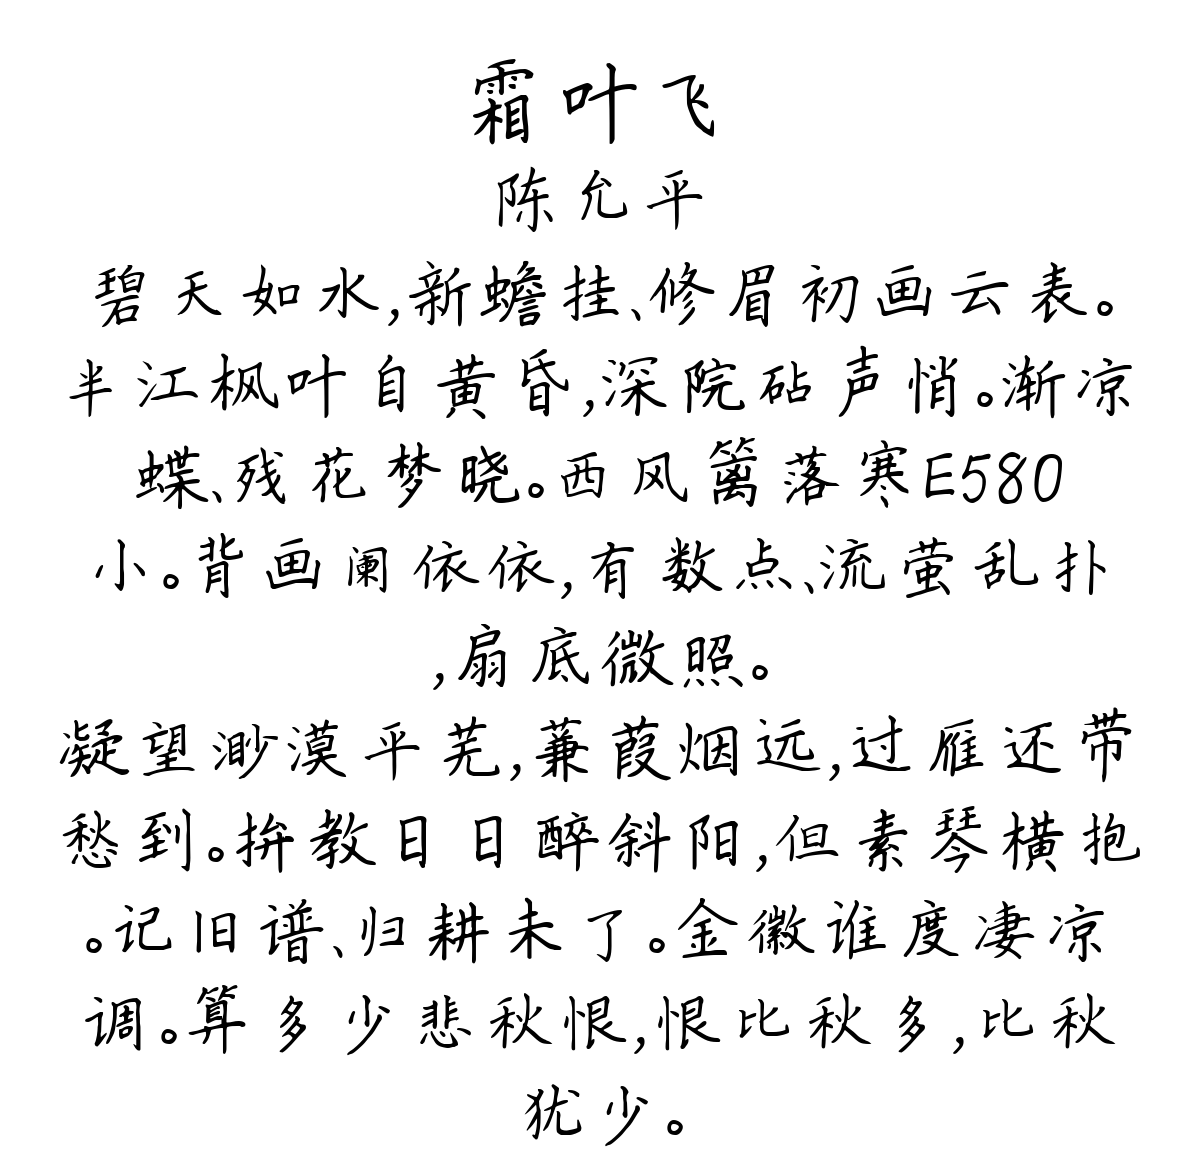 霜叶飞
陈允平
碧天如水,新蟾挂、修眉初画云表。
半江枫叶自黄昏,深院砧声悄。渐凉
蝶、残花梦晓。西风篱落寒E580
小。背画阑依依,有数点、流萤乱扑
,扇底微照。
凝望渺漠平芜,蒹葭烟远,过雁还带
愁到。拚教日日醉斜阳,但素琴横抱
。记旧谱、归耕未了。金徽谁度凄凉
调。算多少悲秋恨,恨比秋多,比秋
犹少。